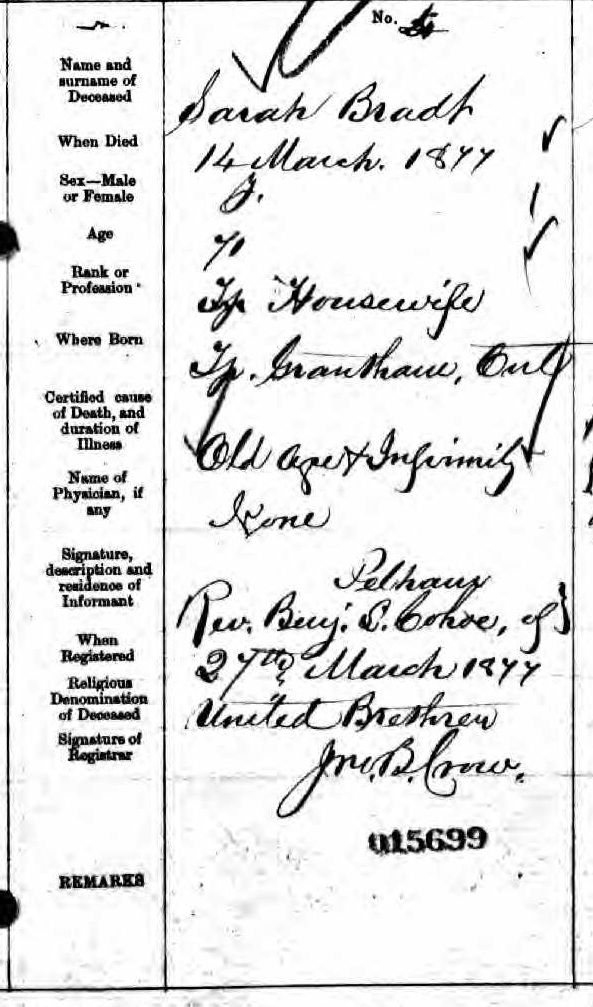 No.
Name and
surname of
Deceased
Sarah Bradt
When Died
14 March. 1877
Sex—Male
or Female
F.
Age
71
Rank or
Profession
Housewife
Where Born
Tp. Grantham, Ont
Certified cause
of Death, and
duration of
Illness
Old age & Infirmity
Name of
Physician, if
any
None
Signature,
description and
residence of
Informant
Pelham
Rev. Benj. L. Cohoe, of }
When
Registered
27th March 1877
Religious
Denomination
of Deceased
United Brethren
Signature of
Registrar
Jno. B. Crow.
015699
REMARKS